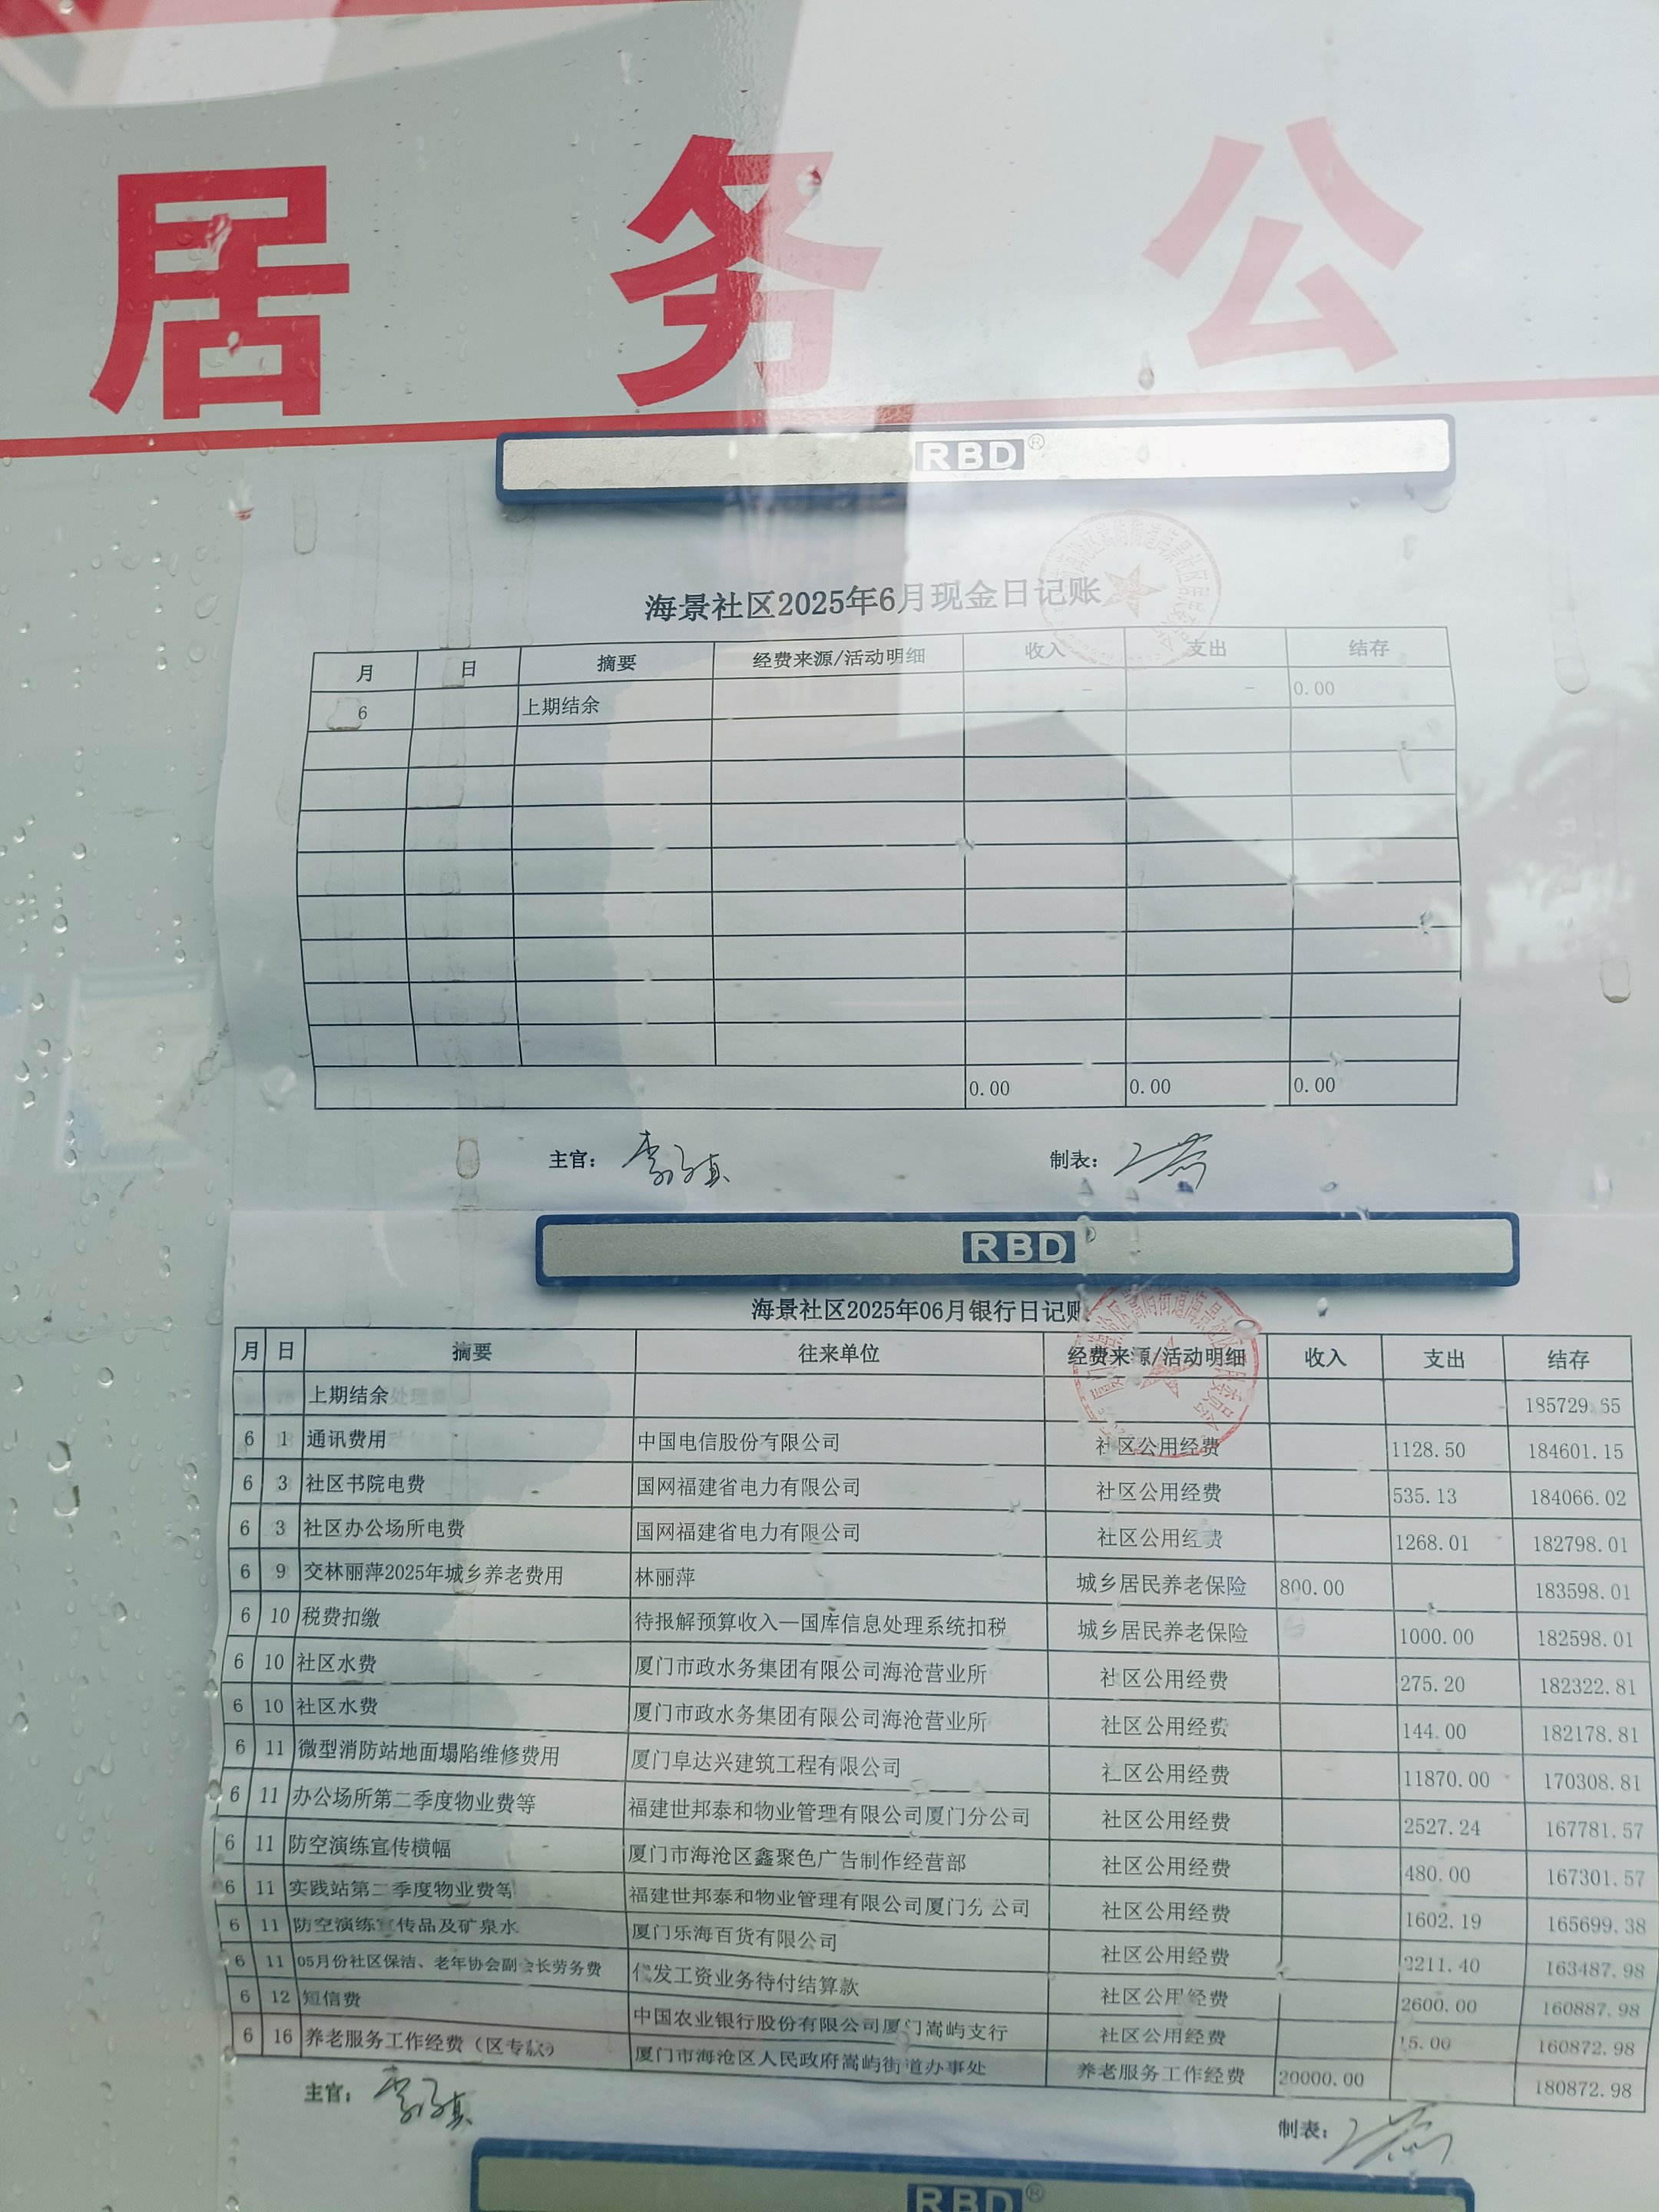 居务公
RBD®
海景社区2025年6月现金日记账
月 日 摘要 经费来源/活动明细 收入 支出 结存
6 上期结余 - - 0.00
0.00 0.00 0.00
主官： 制表：
RBD
海景社区2025年06月银行日记账
月 日 摘要 往来单位 经费来源/活动明细 收入 支出 结存
上期结余 185729.65
6 1 通讯费用 中国电信股份有限公司 社区公用经费 1128.50 184601.15
6 3 社区书院电费 国网福建省电力有限公司 社区公用经费 535.13 184066.02
6 3 社区办公场所电费 国网福建省电力有限公司 社区公用经费 1268.01 182798.01
6 9 交林丽萍2025年城乡养老费用 林丽萍 城乡居民养老保险 800.00 183598.01
6 10 税费扣缴 待报解预算收入—国库信息处理系统扣税 城乡居民养老保险 1000.00 182598.01
6 10 社区水费 厦门市政水务集团有限公司海沧营业所 社区公用经费 275.20 182322.81
6 10 社区水费 厦门市政水务集团有限公司海沧营业所 社区公用经费 144.00 182178.81
6 11 微型消防站地面塌陷维修费用 厦门阜达兴建筑工程有限公司 社区公用经费 11870.00 170308.81
6 11 办公场所第二季度物业费等 福建世邦泰和物业管理有限公司厦门分公司 社区公用经费 2527.24 167781.57
6 11 防空演练宣传横幅 厦门市海沧区鑫聚色广告制作经营部 社区公用经费 480.00 167301.57
6 11 实践站第二季度物业费等 福建世邦泰和物业管理有限公司厦门分公司 社区公用经费 1602.19 165699.38
6 11 防空演练宣传品及矿泉水 厦门乐海百货有限公司 社区公用经费 2211.40 163487.98
6 11 05月份社区保洁、老年协会副会长劳务费 代发工资业务待付结算款 社区公用经费 2600.00 160887.98
6 12 短信费 中国农业银行股份有限公司厦门嵩屿支行 社区公用经费 15.00 160872.98
6 16 养老服务工作经费（区专款） 厦门市海沧区人民政府嵩屿街道办事处 养老服务工作经费 20000.00 180872.98
主官： 制表：
RBD®